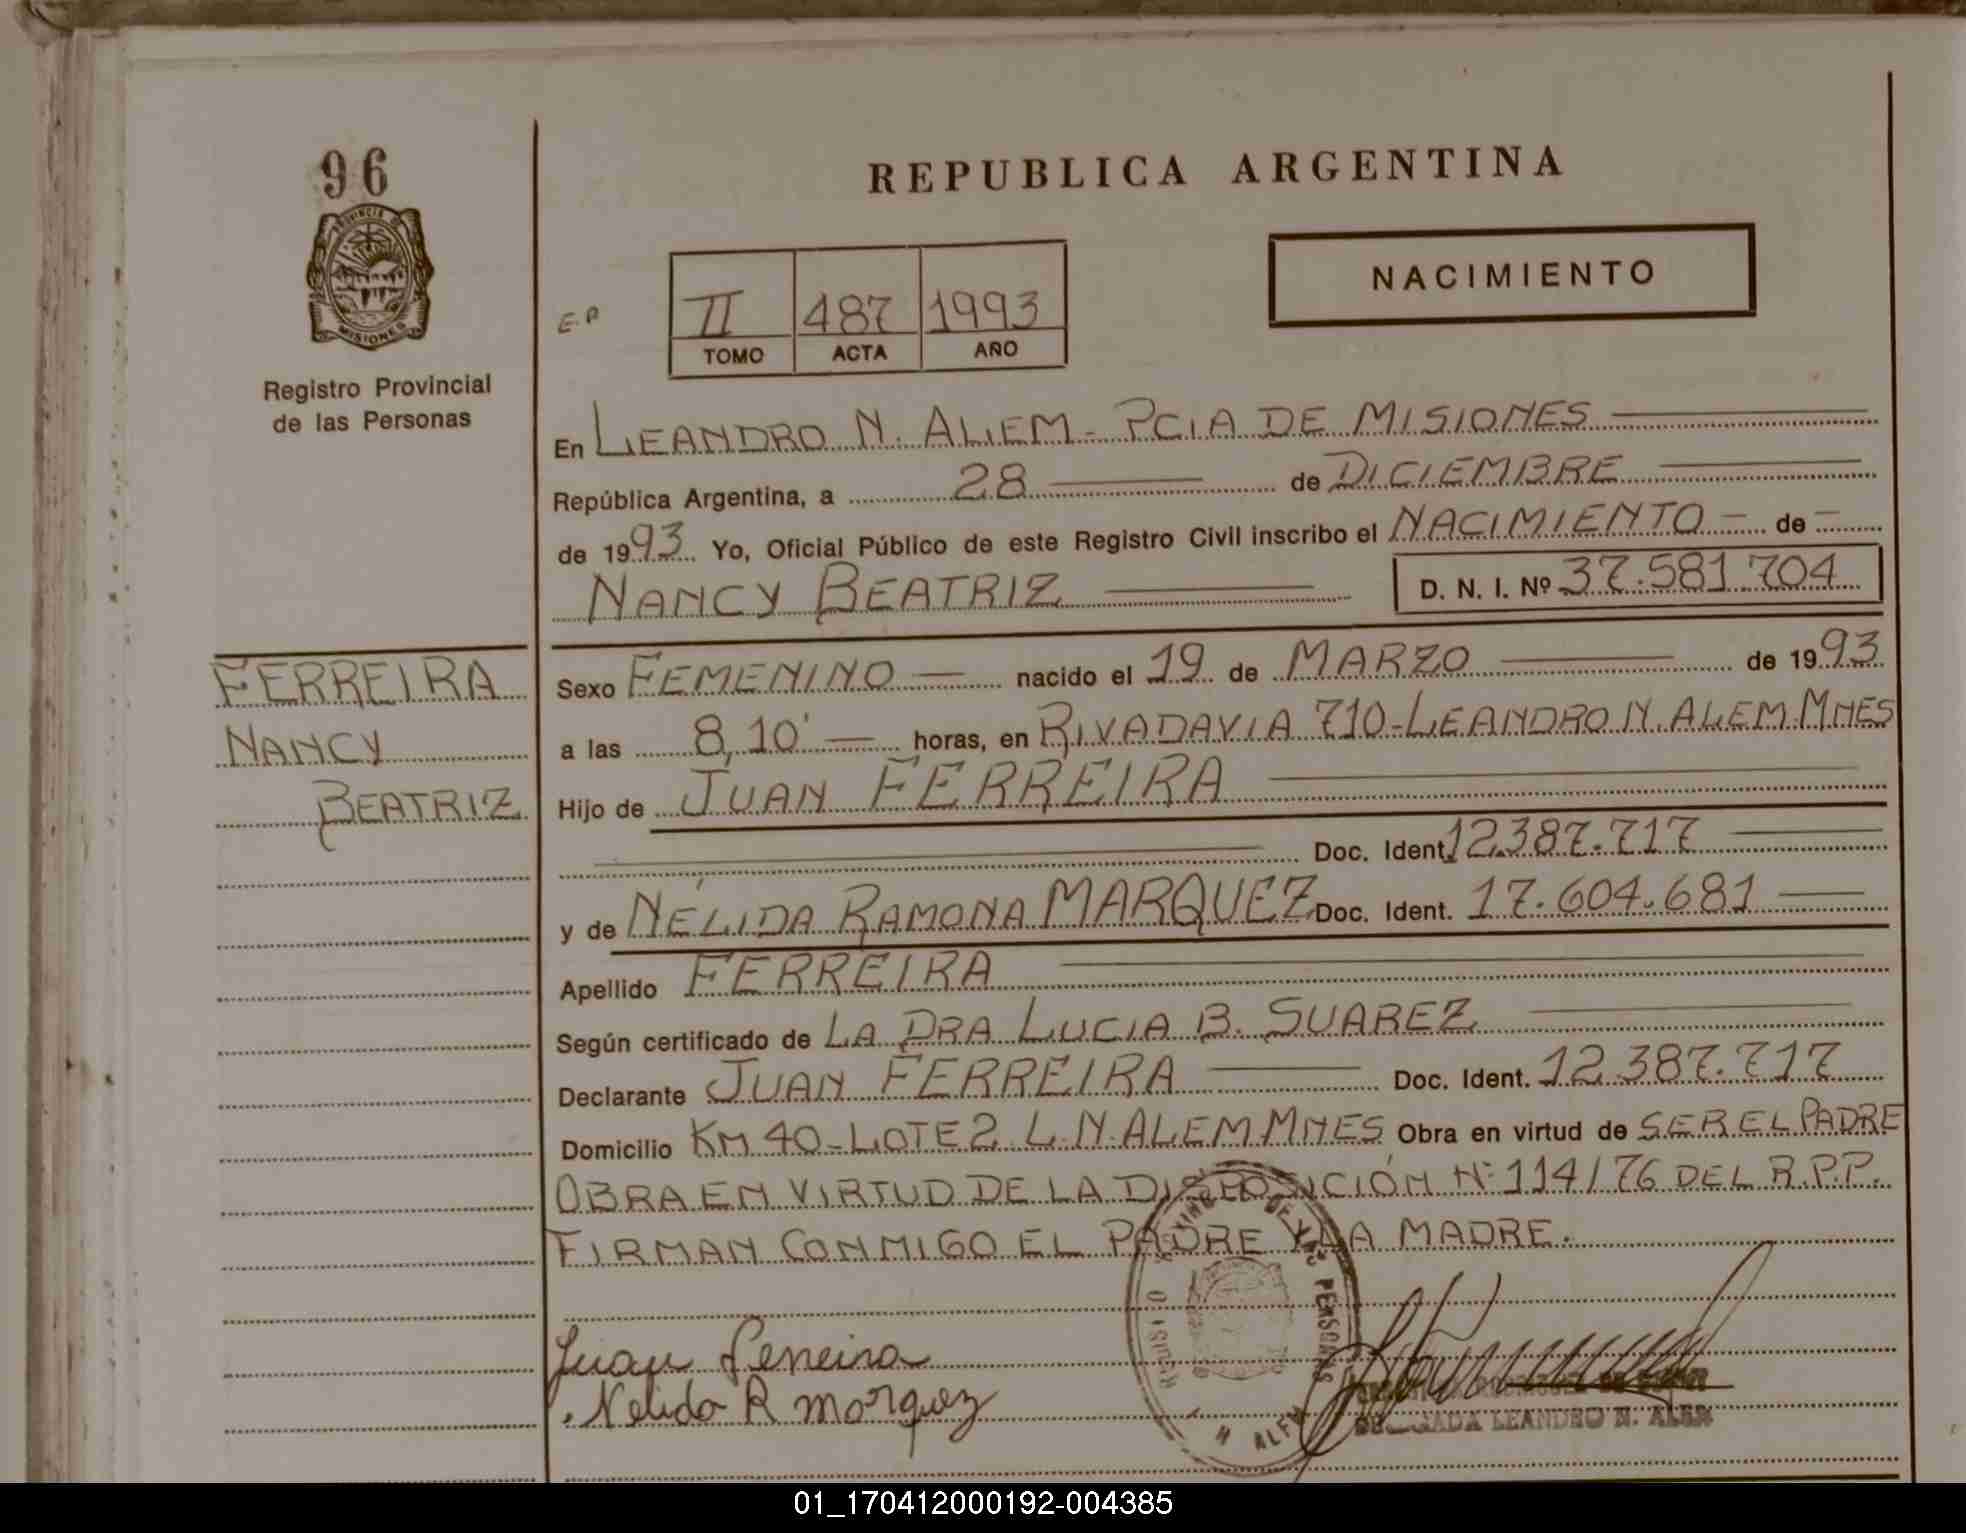 96
PROVINCIA DE
MISIONES
Registro Provincial
de las Personas
REPUBLICA ARGENTINA
NACIMIENTO
E.P
II 487 1993
TOMO ACTA AÑO
En LEANDRO N. ALEM - PCIA DE MISIONES
República Argentina, a 28 de DICIEMBRE
de 1993 Yo, Oficial Público de este Registro Civil inscribo el NACIMIENTO - de -
NANCY BEATRIZ D. N. I. Nº 37.581.704
FERREIRA
NANCY
BEATRIZ
Sexo FEMENINO - nacido el 19 de MARZO de 1993
a las 8,10' - horas, en RIVADAVIA 710-LEANDRO N. ALEM.MNES
Hijo de JUAN FERREIRA
Doc. Ident. 12.387.717
y de NÉLIDA RAMONA MARQUEZ Doc. Ident. 17.604.681
Apellido FERREIRA
Según certificado de LA DRA LUCIA B. SUAREZ
Declarante JUAN FERREIRA Doc. Ident. 12.387.717
Domicilio KM 40-LOTE 2 L.N.ALEM MNES Obra en virtud de SER EL PADRE
OBRA EN VIRTUD DE LA DISPOSICIÓN Nº 114/76 DEL R.P.P.
FIRMAN CONMIGO EL PADRE Y LA MADRE.
Juan Ferreira
Nelida R marquez
DE LAS PERSONAS
LEANDRO N. ALEM
01_170412000192-004385